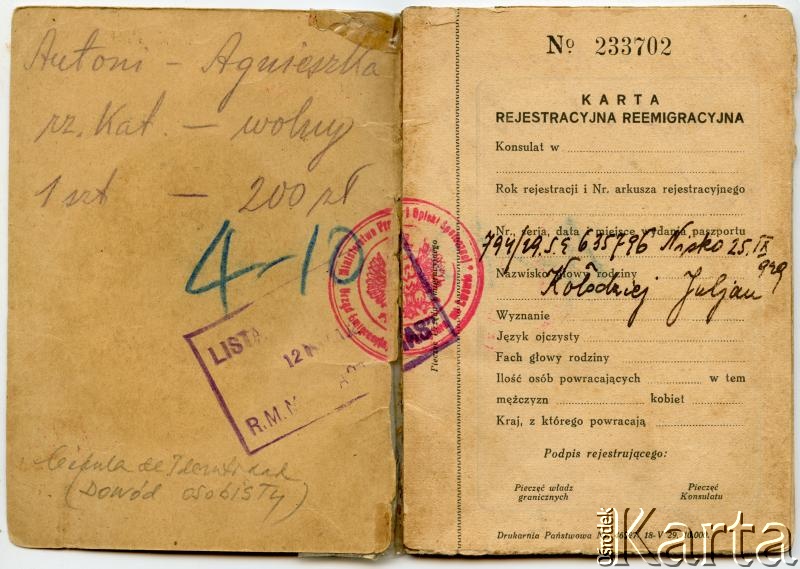 Antoni - Agnieszka
rz. Kat. - wolny
1 szt - 200 zł
4-10
LISTA
12
R.M.N
de Identidad
(Dowód osobisty)
№ 233702
KARTA
REJESTRACYJNA REEMIGRACYJNA
Konsulat w
Rok rejestracji i Nr. arkusza rejestracyjnego
Nr., serja, data i miejsce wydania paszportu
794/29 S.E 635796 Nisko 25.IX
929
Nazwisko głowy rodziny
Kołodziej Juljan
Wyznanie
Język ojczysty
Fach głowy rodziny
Ilość osób powracających w tem
mężczyzn kobiet
Kraj, z którego powracają
Podpis rejestrującego:
Pieczęć władz granicznych
Pieczęć Konsulatu
Drukarnia Państwowa 18-V 29. 10.000.
ośrodek Karta